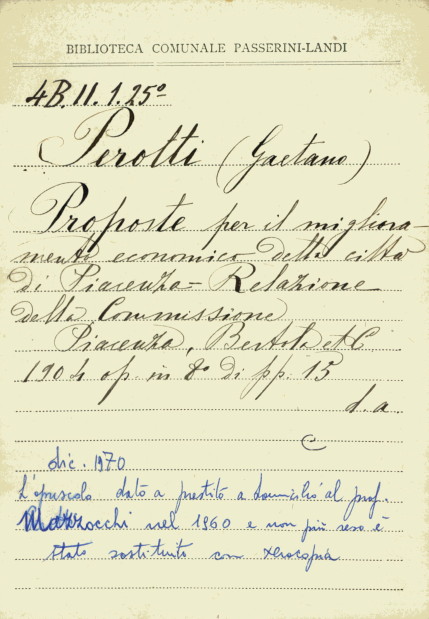 BIBLIOTECA COMUNALE PASSERINI-LANDI
4B.II.1.25º
Perotti (Gaetano)
Proposte per il migliora-
mento economico della città
di Piacenza = Relazione
della Commissione
Piacenza, Bertola et C
1904 op. in 8º di pp. 15
d. a.
C
dic. 1970
L'opuscolo dato a prestito a domicilio al prof.
Mazzocchi nel 1960 e non più reso è
stato sostituito con xerocopia